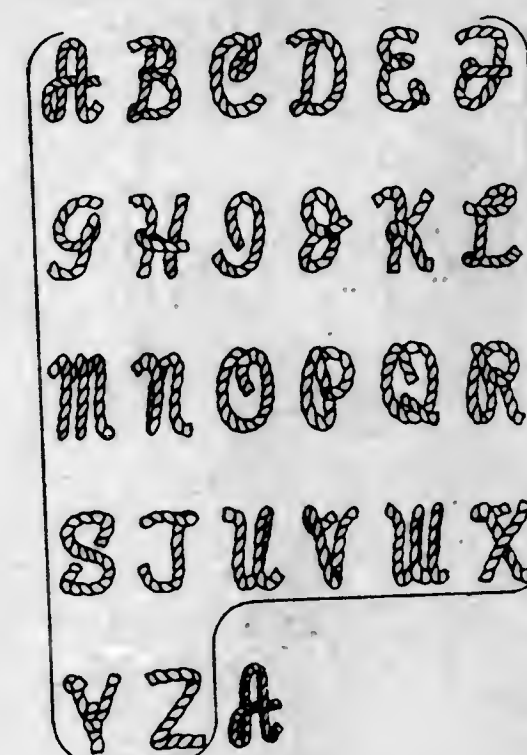 A B C D E F
G H I J K L
M N O P Q R
S T U V W X
Y Z A